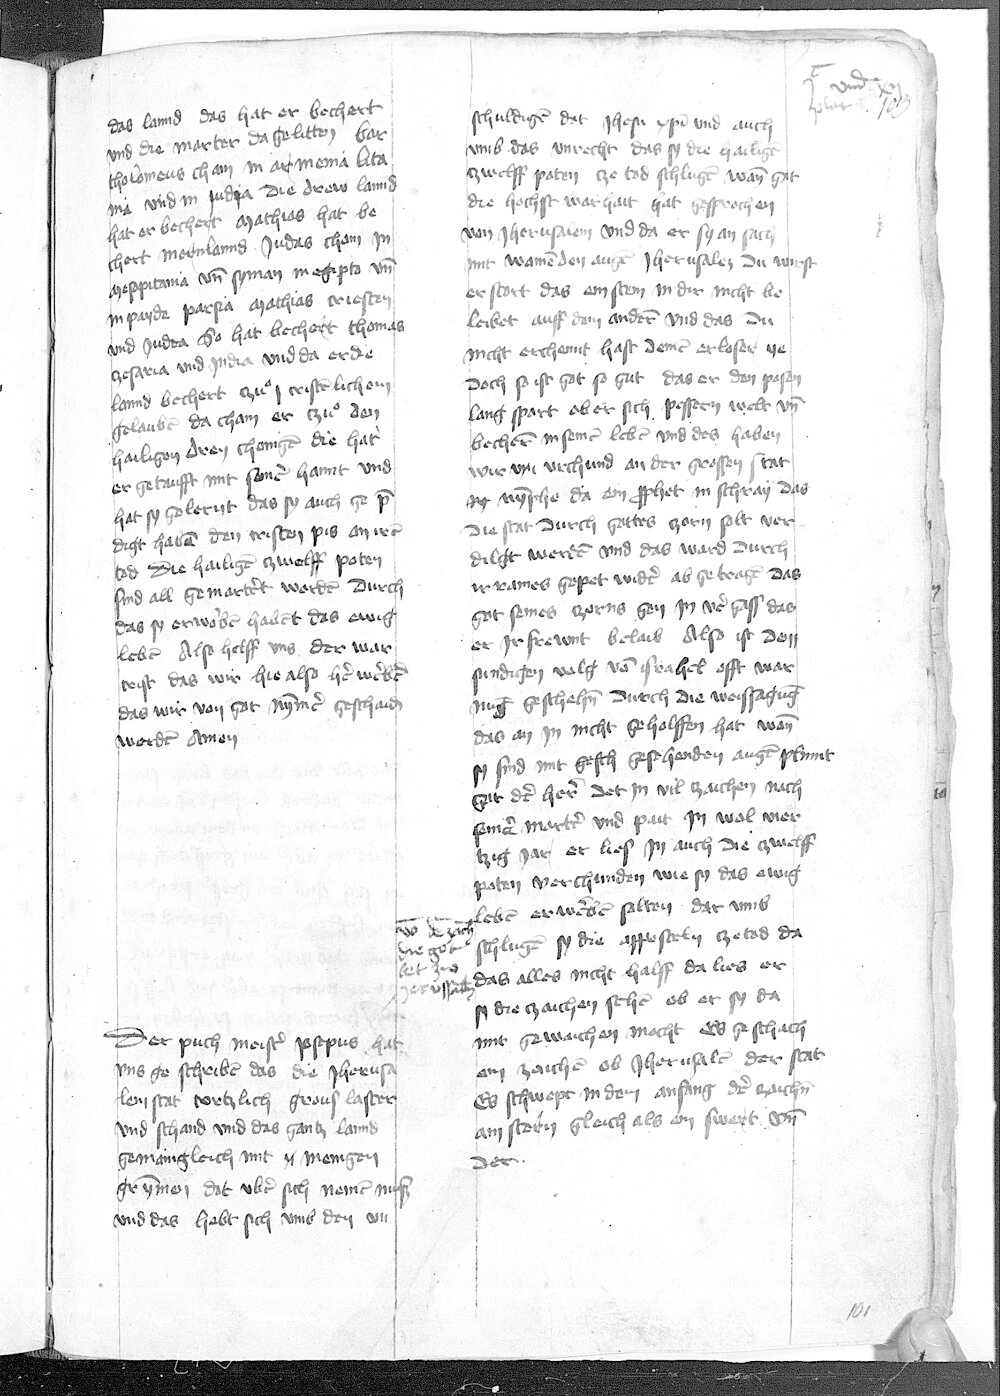 das lannd das hat er bechert
vnd die marter da gelitten bar
tholomeus cham in armenia lita
nia vnd in judea Die drew lannd
hat er bechert Mathias hat be
chert mornlannd Judas cham in
Mesopitania vn̄ syman in egipto vn̄
in payde parsia Mathias triesten
vnd Judea So hat bechert thomas
cesaria vnd Jndia vnd da er die
lannd bechert czuͦ cristēlichem
gelaubē da cham er czuͦ den
hailigen dren chonigē die hat
er getaufft mit seinē hannt vnd
hat sy gelernt das sy auch ge p̄
digt habē den cristen pis an irē
tod Die hailigē czwelff poten
sind all gemartert wordē durch
das sy erworbē habēt das ewig
lebē Also helff vns der war
crist das wir hie also hē werbē
das wir von got nymer geschaidē
werdē Amen
vō dē zaich
die got
let zu
Jerussalem
Der puch meister Josepus hat
vns ge schribē das die Jherusa
lem stat wrtzlich gross laster
vnd schand vnd das gantz lannd
gemaingleich mit y menigen
grȳmen dat vber sich nemē must
vnd das hebt sich vmb den vn
schuldigē dot Jhesu xpi vnd auch
vmb das vnrecht das sy die hailigē
czwelff poten ze tod schlugē wan̄ got
die hochst warhait hat gesprochen
von Jherusalem vnd da er sy an sach
mit wainēden augē Jherusalem du wirst
er stort das ein stein in dir nicht be
leibet auff dem anderē vnd das du
nicht erchennt hast deinē erloser ye
doch so ist got so gut das er den posen
lang spart ob er sich pessern welt vn̄
becherē in seinē lebē vnd des haben
wir ain vrchund an der grossen stat
Nyniphe da ein prophet in schray das
die stat durch gottes zorn solt ver
dilgt werdē vnd das ward durch
ir rames gepet wider ab getragē das
got seines czorns gen in vergass das
er ir frewnt belaib Also ist dem
sundigen volg vō israhel offt war
nug geschehn durch die weissagūg
das an in nicht geholffen hat wan̄
sy sind mit gesehenden augē plinnt
got der herr det in vil zaichen nach
seiner marter vnd pait in wol vier
tzig jar er lies in auch die czwelff
poten verchunden wie sy das ewig
lebē erwerbē solten dar vmb
schlugē sy die apposteln ze tod da
das alles nicht halff da lies er
sy die zaichen sehē ob er sy da
mit gewaichen mocht Es geschach
ein zaichē ob Jherusalē der stat
Es schwept in dem anfang der zaichn̄
ain stern gleich als ein swert vn̄
der
103
101